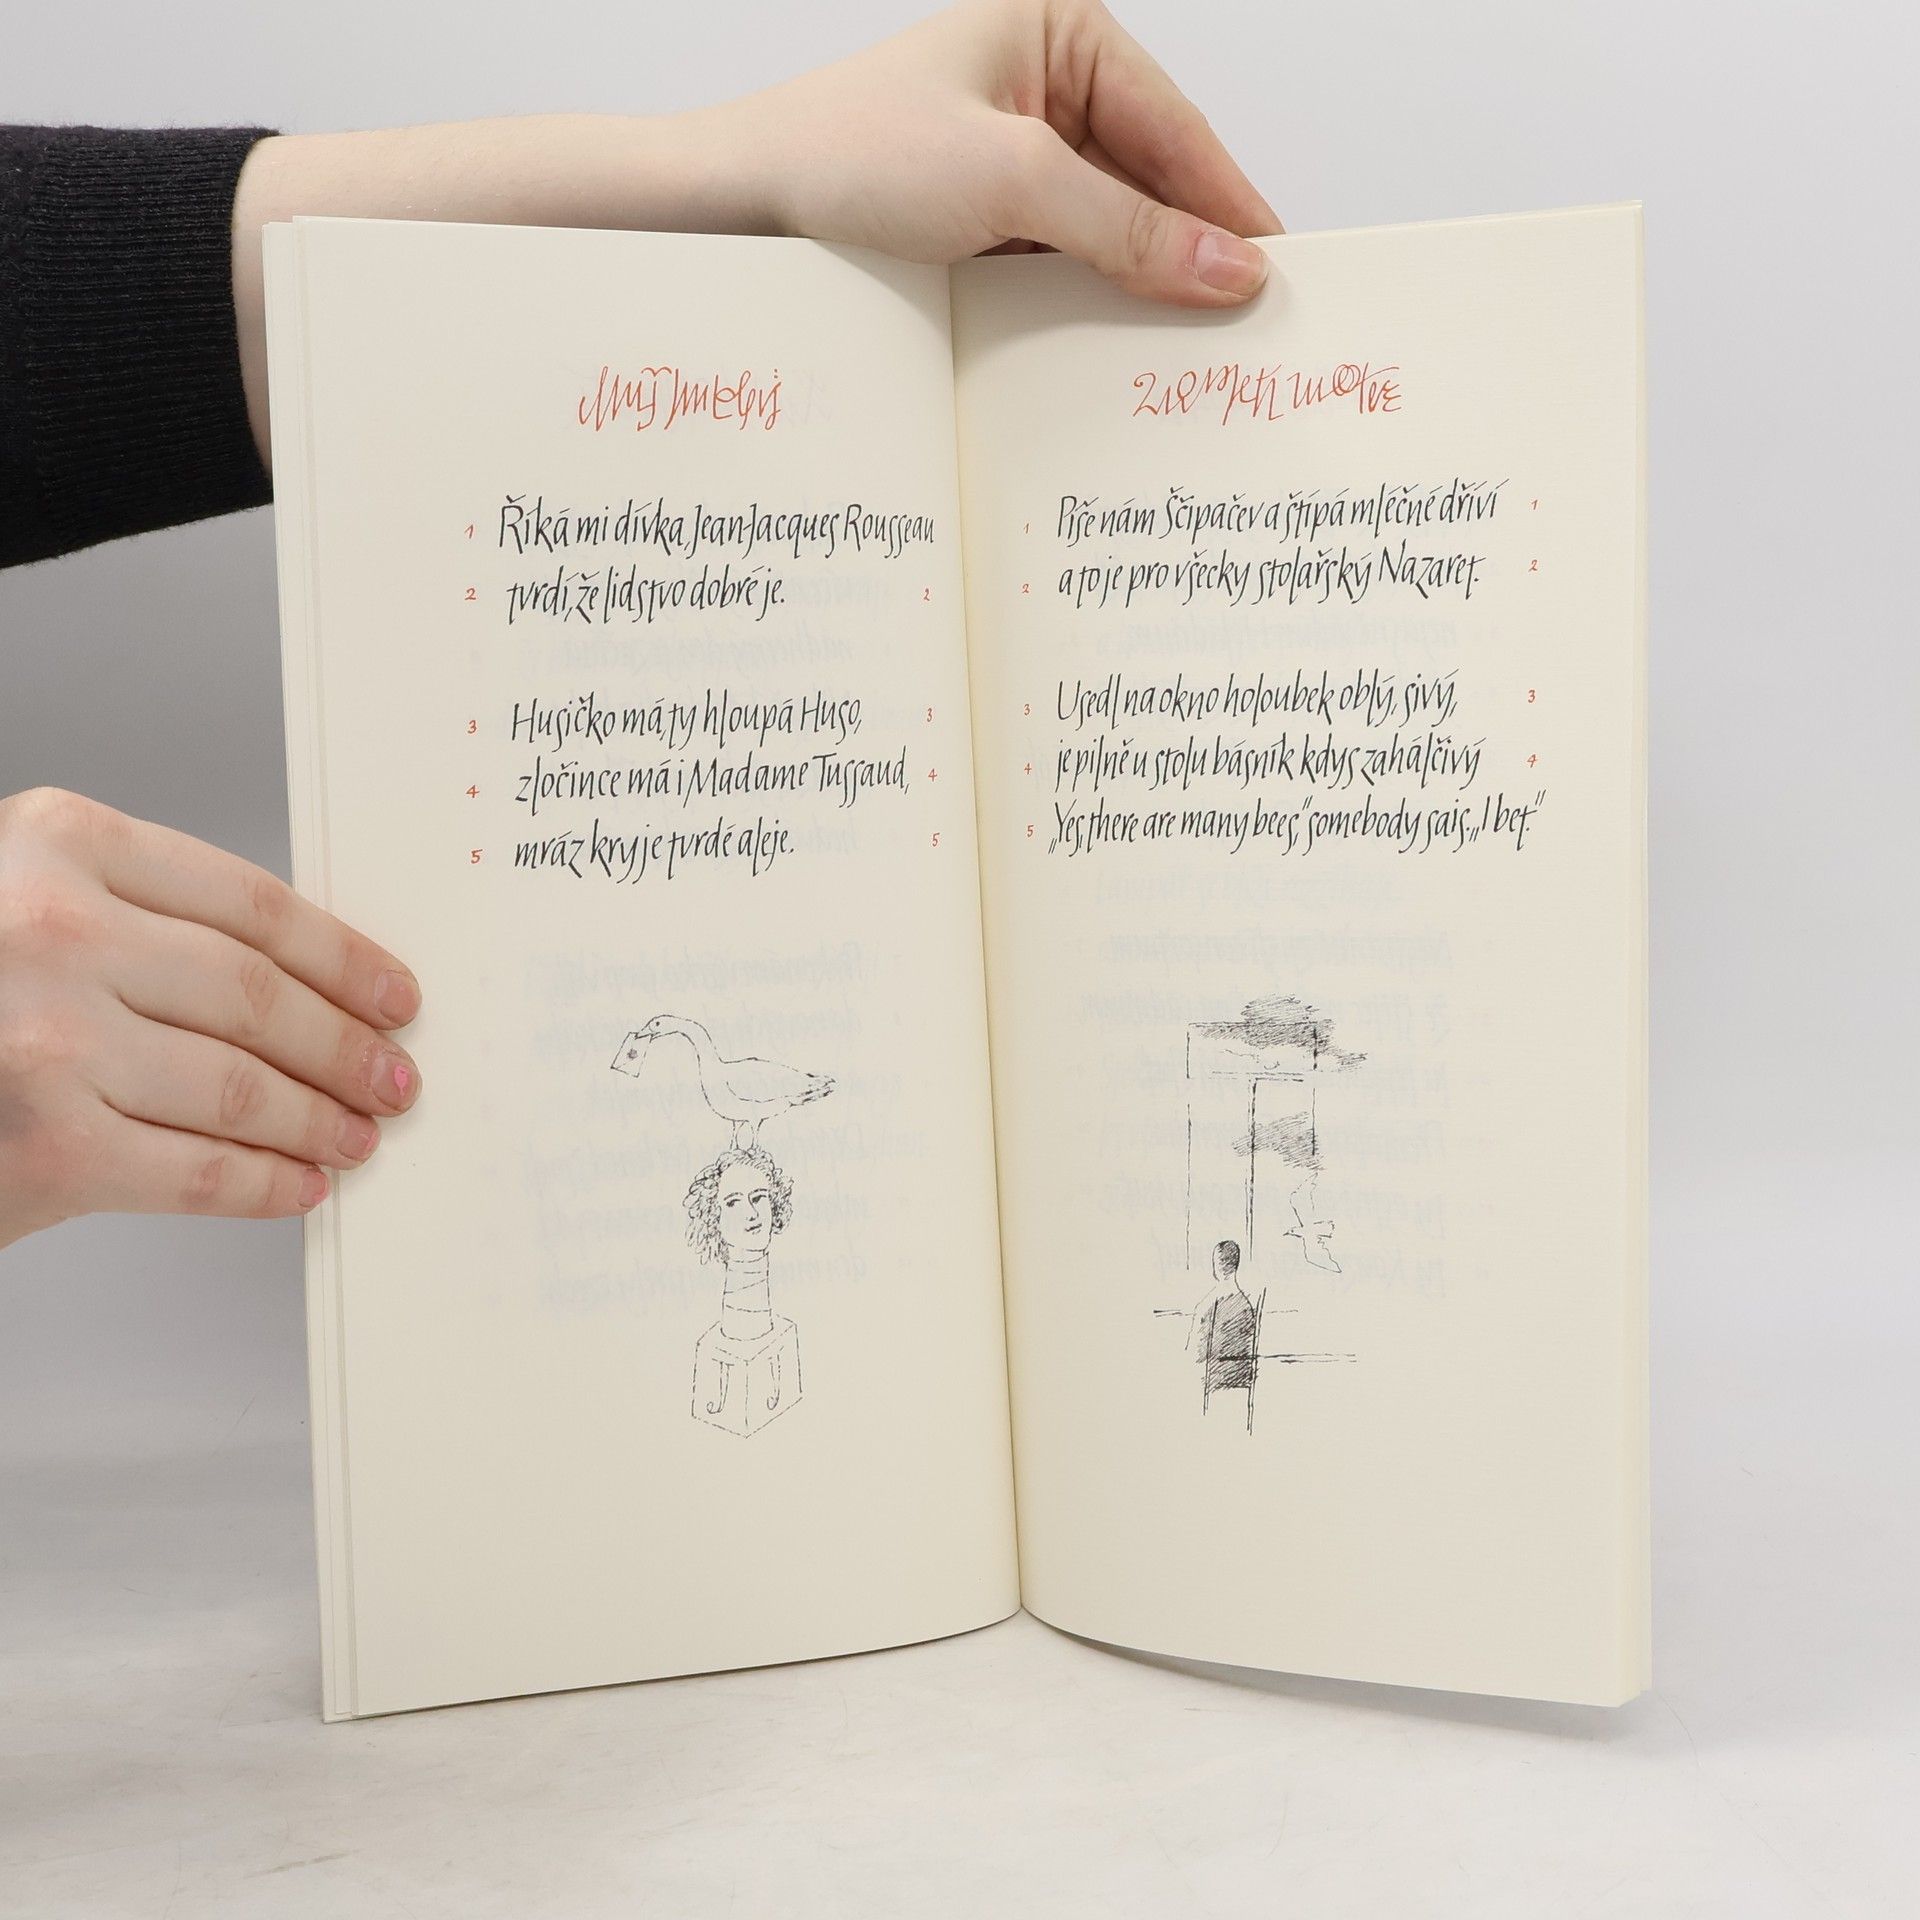 1 Říká mi dívka, Jean-Jacques Rousseau
2 tvrdí, že lidstvo dobré je. 2
3 Husičko má, ty hloupá Huso, 3
4 zločince má i Madame Tussaud, 4
5 mráz kryje tvrdé aleje. 5
J J
1 Píše nám Ščipačev a štípá mléčné dříví 1
2 a to je pro všecky stolařský Nazaret. 2
3 Usedl na okno holoubek oblý, sivý, 3
4 je pilně u stolu básník kdys zahálčivý 4
5 „Yes, there are many bees,“ somebody sais. „I bet.“